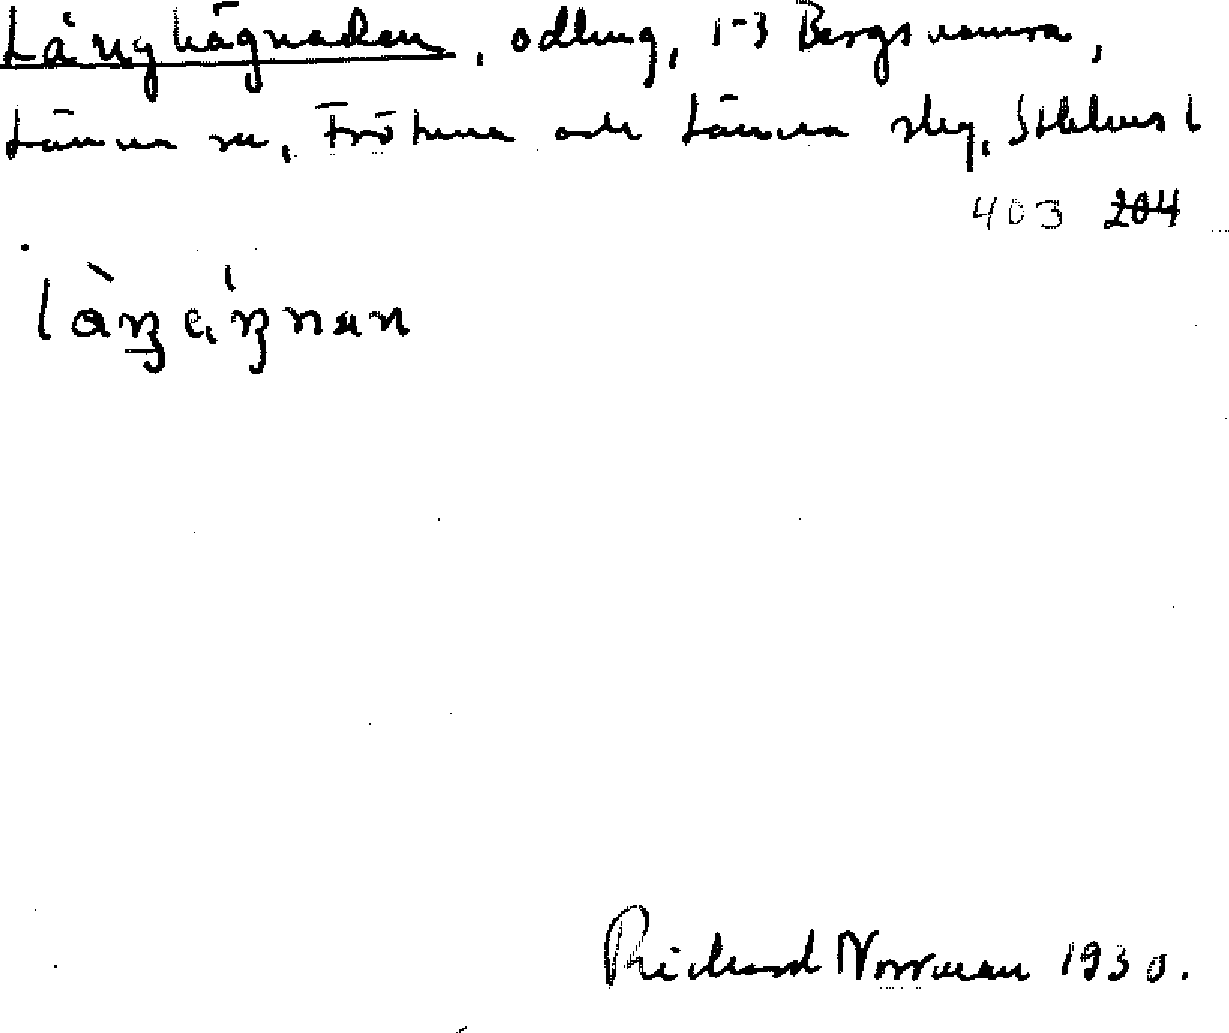 Långhägnaden, odling, 1-3 Bergsvamra,
Länna sn, Frötuna och Länna skg, Sthlms l
403 204
Richard Norrman 1930.